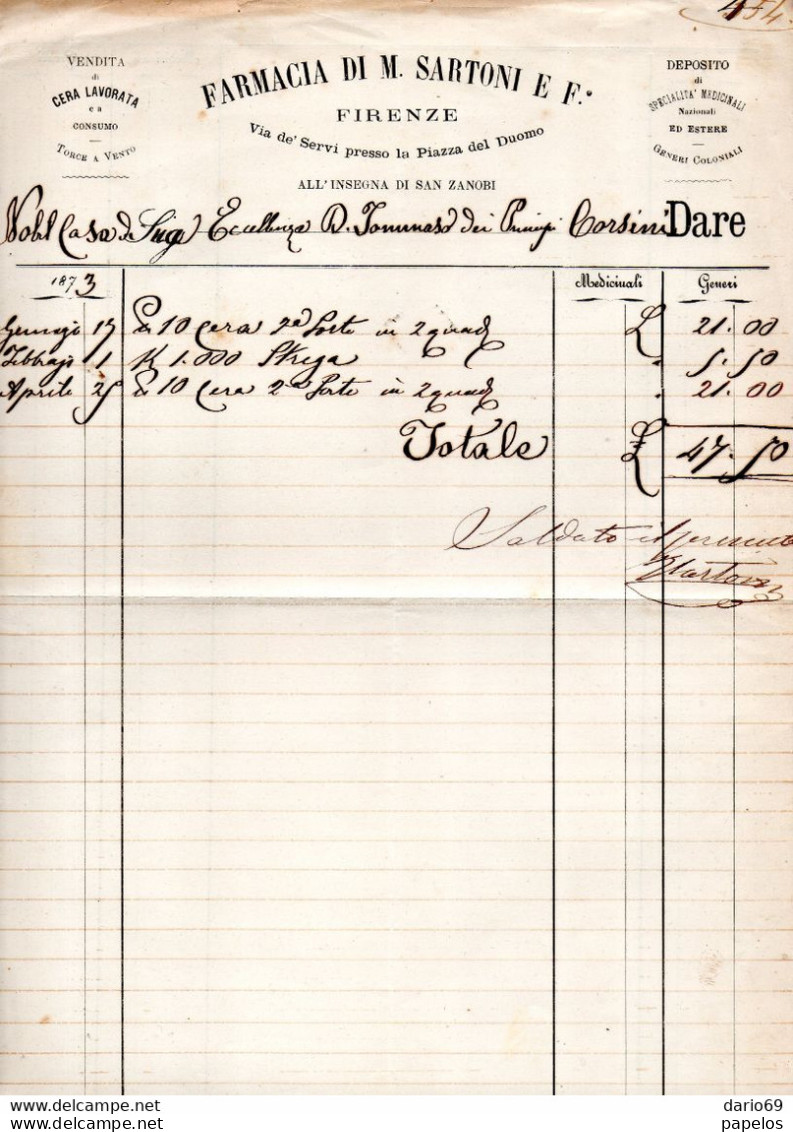 454
VENDITA
di
CERA LAVORATA
e a
CONSUMO
TORCE A VENTO
FARMACIA DI M. SARTONI E F.o
FIRENZE
Via de' Servi presso la Piazza del Duomo
ALL'INSEGNA DI SAN ZANOBI
DEPOSITO
di
SPECIALITA' MEDICINALI
Nazionali
ED ESTERE
GENERI COLONIALI
Nobil Casa di Sua Eccellenza D. Tommaso dei Principi Corsini Dare
1873 Medicinali Generi
Gennajo 17 10 Cera 2a Sorte in 2 quad £ 21.00
Febbrajo 1 K 1.000 Strega " 5.50
Aprile 25 10 Cera 2a Sorte in 2 quad " 21.00
Totale £ 47.50
Saldato il
Sartoni
dario69
https://www.delcampe.net papelos